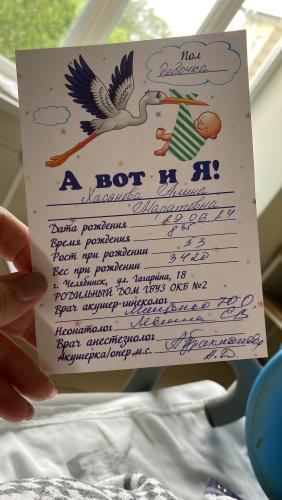 Пол
девочка
А вот и Я!
Хасанова
Маратовна
Дата рождения 29.06.24
Время рождения 8 35
Рост при рождении 53
Вес при рождении 3420
г. Челябинск, ул. Гагарина, 18
РОДИЛЬНЫЙ ДОМ ГБУЗ ОКБ №2
Врач акушер-гинеколог Ю.О.
Неонатолог С.В.
Врач анестезиолог
Акушерка/опер.м.с. А.Д.